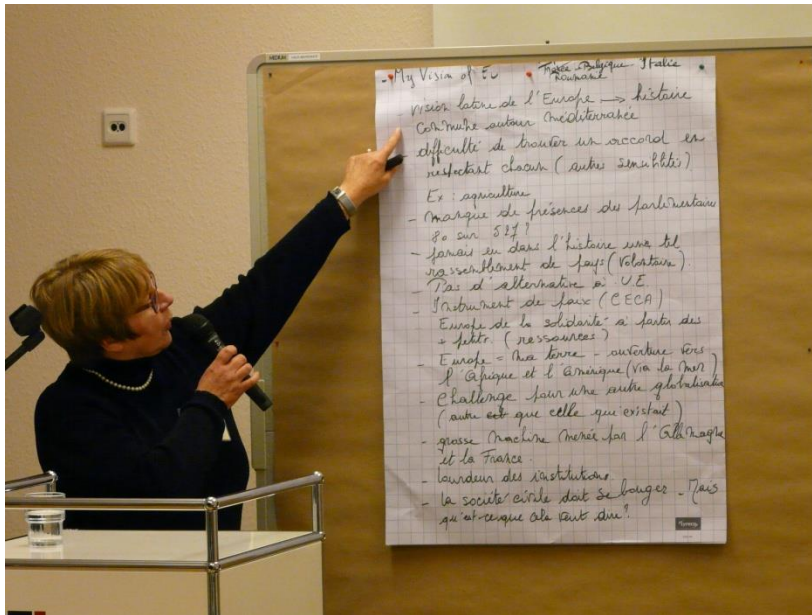 - My Vision of EU
Belgique Italie
Roumanie
- vision latine de l'Europe → histoire
commune autour méditerranée
- difficulté de trouver un accord en
respectant chacun (autres sensibilités)
Ex : agriculture
- manque de présences des parlementaires
80 sur 527?
- jamais eu dans l'histoire une tel
rassemblement de pays (volontaire).
- Pas d'alternative à U.E.
- Instrument de paix (CECA)
Europe de la solidarité à partir des
+ petits. (ressources)
- Europe = ma terre - ouverture vers
l'Afrique et l'Amérique (via la mer)
- Challenge pour une autre globalisation
(autre que celle qu'existant)
- grosse machine menée par l'Allemagne
et la France.
- lourdeur des institutions.
- la société civile doit se bouger - Mais
qu'est-ce que cela veut dire?